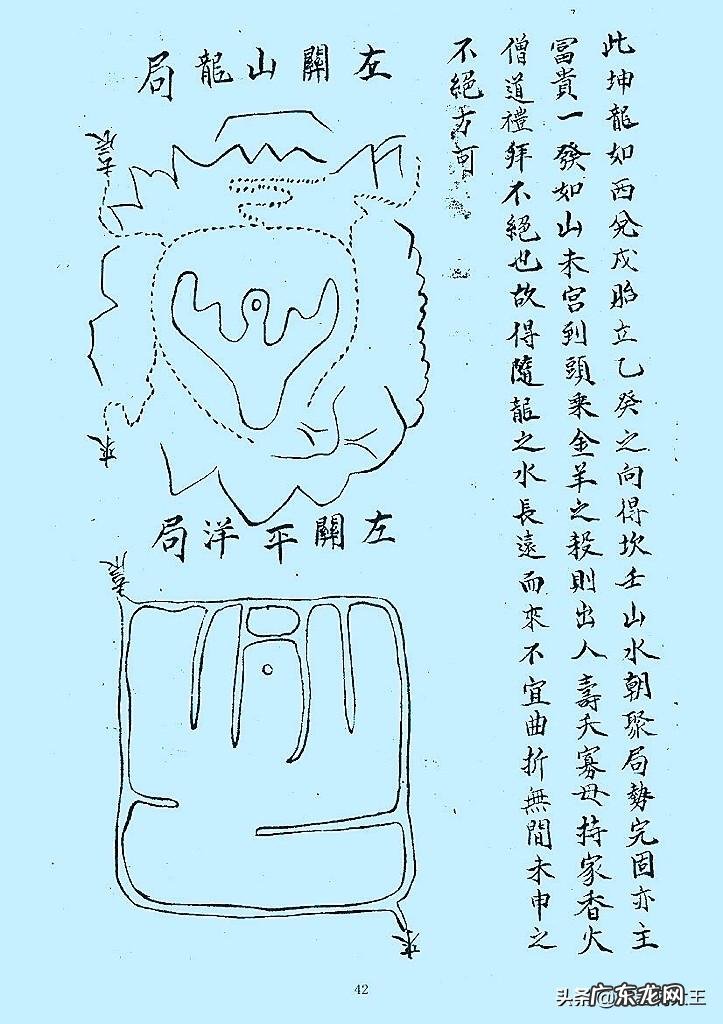 此坤龍如西兌成胎立乙癸之向得坎壬山水朝聚局勢完固亦主
冨貴一發如山未宮到頭乘金羊之殺則出人壽夭寡母持家香火
僧道禮拜不絕也故得隨龍之水長遠而來不宜曲折無間未申之
不絕方可
左關山龍局
辰
來
左關平洋局
辰
來
42
头条@广东龙网
王